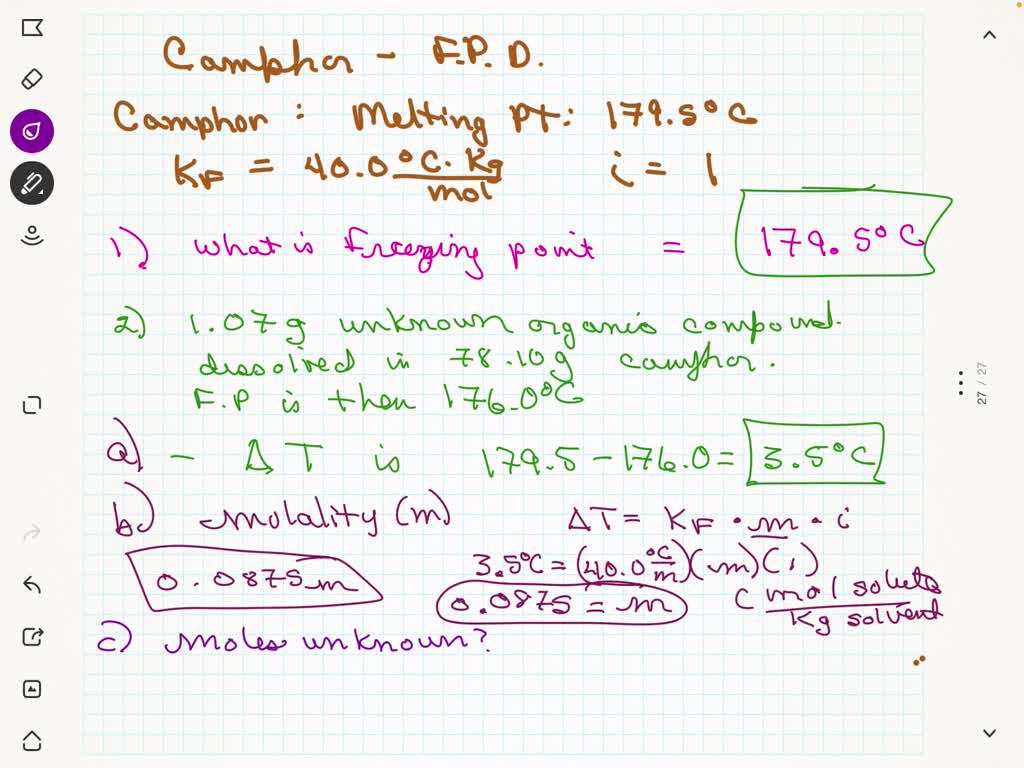 Camphor - F.P.D.
Camphor : Melting pt: 179.5°C
KF = 40.0 °C·Kg/mol i = 1
1) what is freezing point = 179.5°C
2) 1.07g unknown organic compound.
dissolved in 78.10g camphor.
F.P is then 176.0°C
a) - ΔT is 179.5-176.0= 3.5°C
b) molality (m) ΔT= KF · m · i
3.5°C = (40.0 °C/m)(m)(1)
0.0875m 0.0875 = m mol solute/Kg solvent
c) moles unknown?
27 / 27